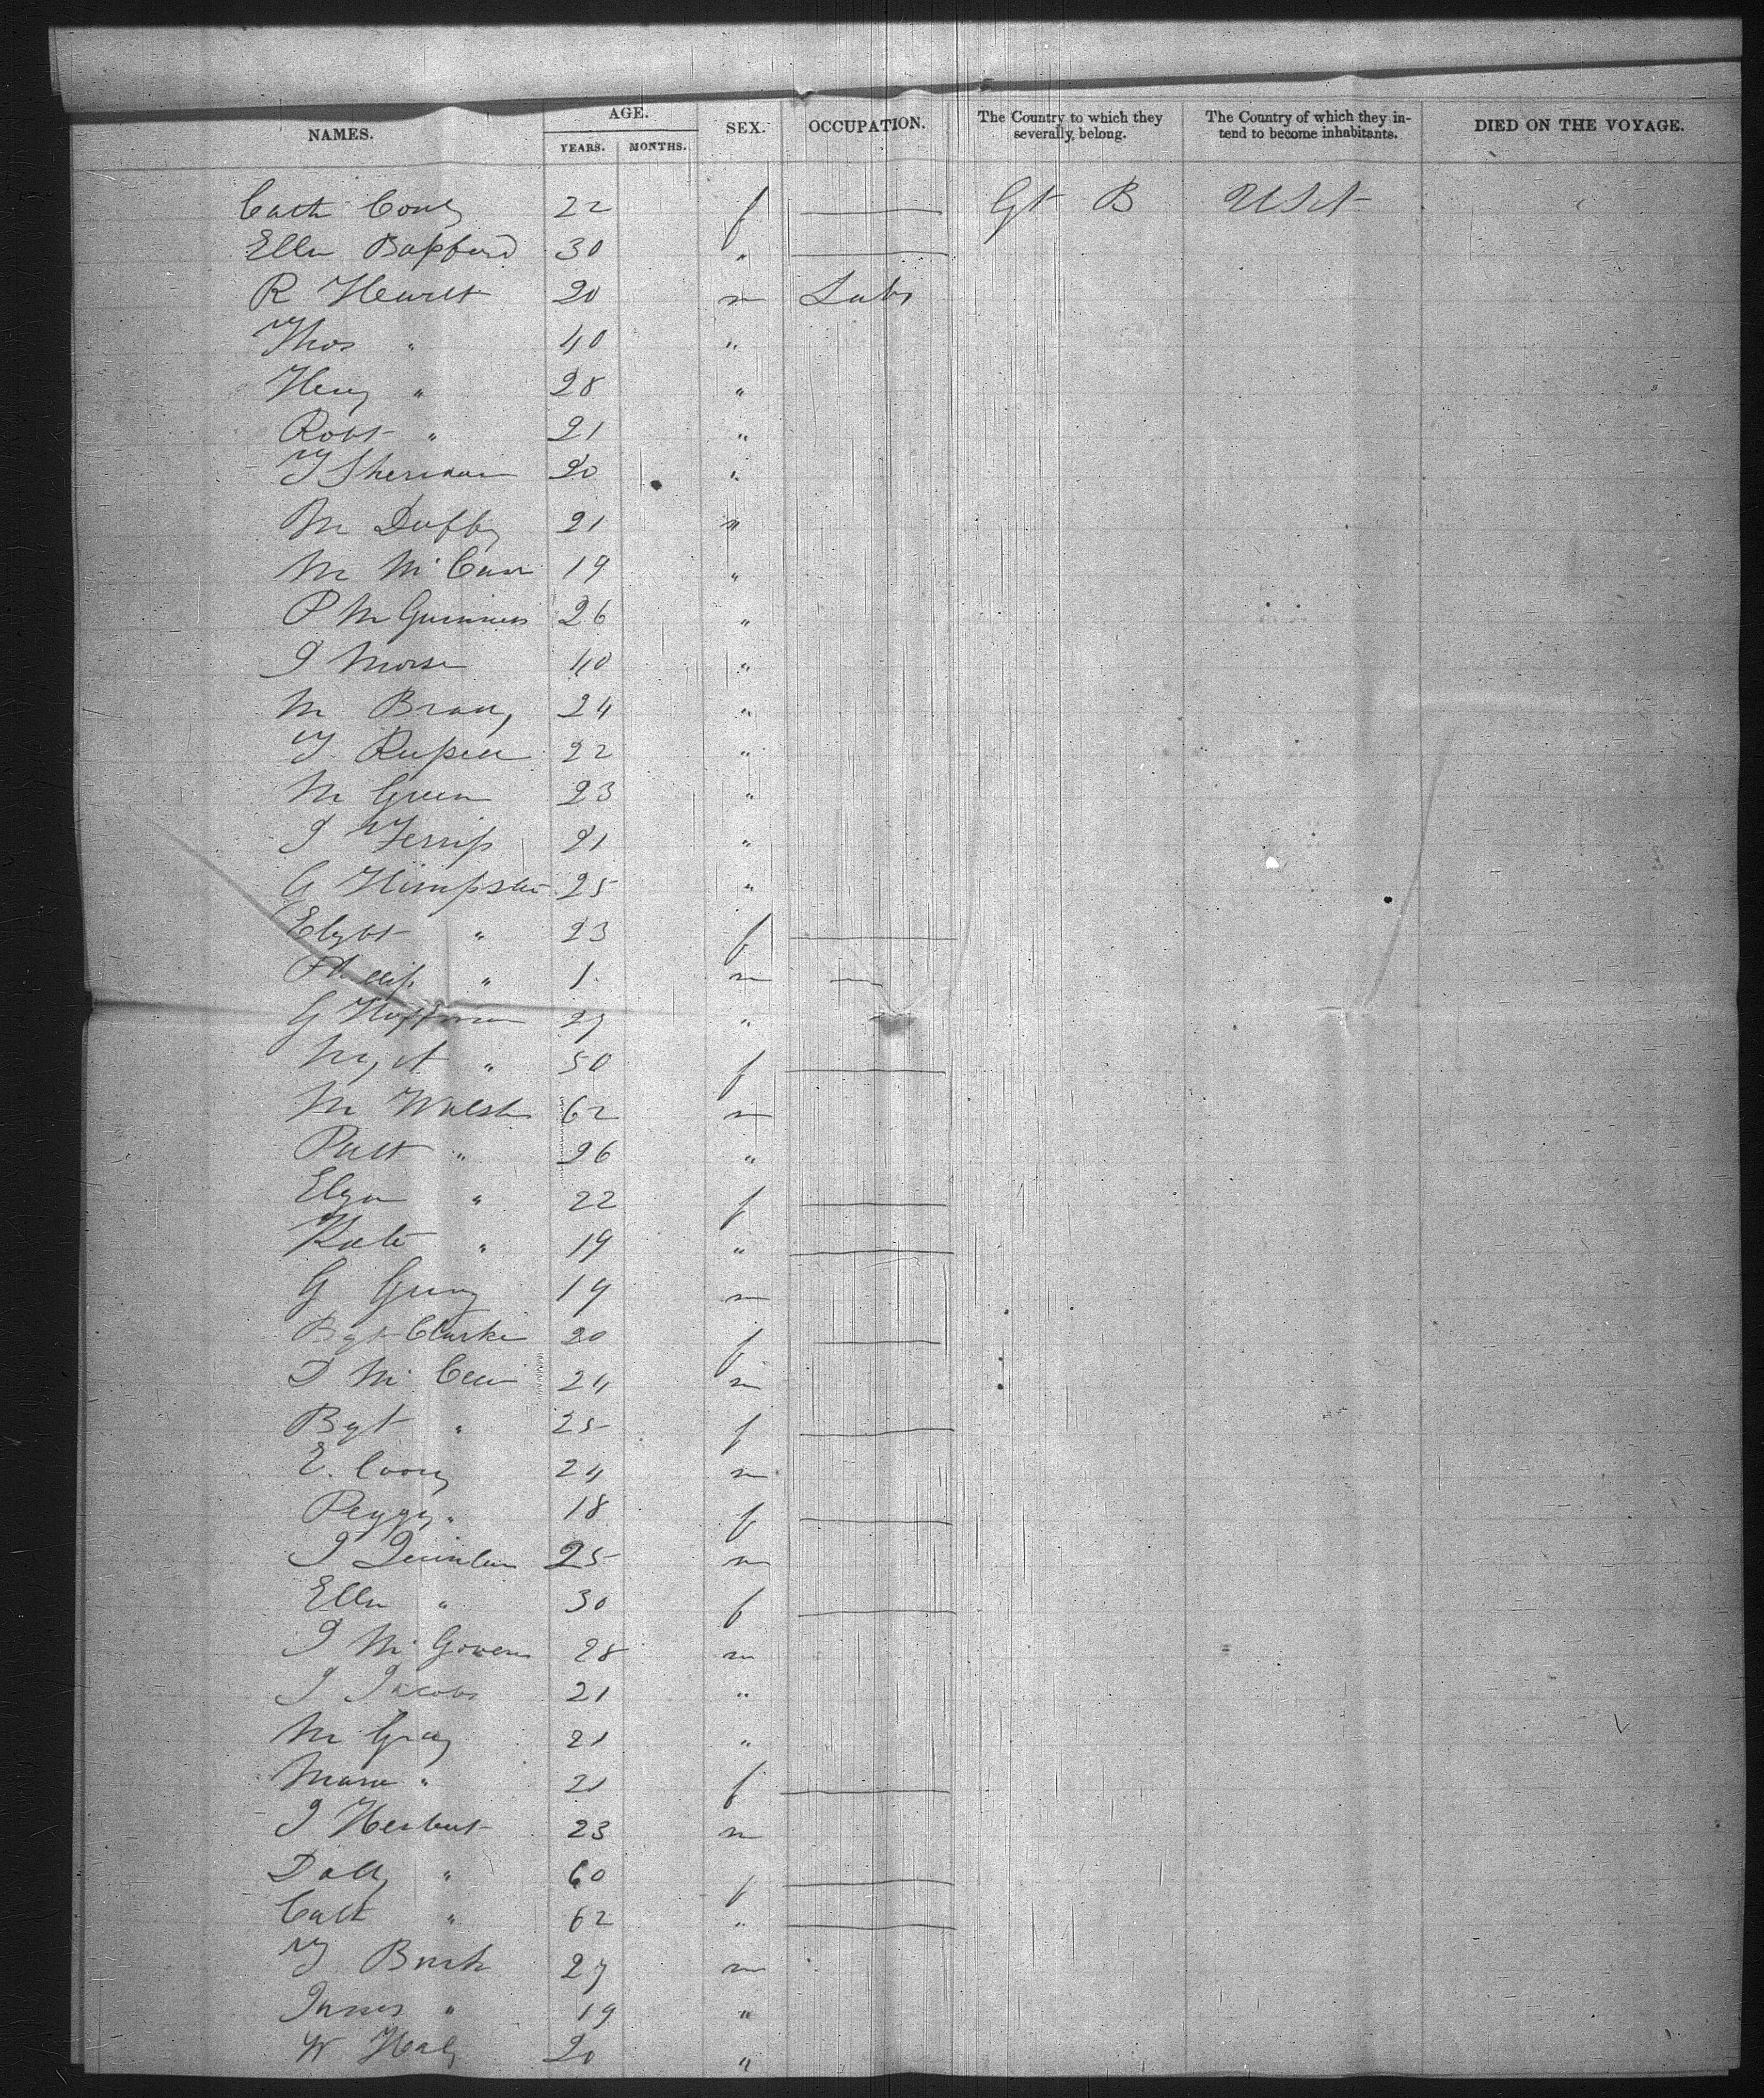 NAMES. AGE. YEARS. MONTHS. SEX. OCCUPATION. The Country to which they severally, belong. The Country of which they intend to become inhabitants. DIED ON THE VOYAGE.
Cath 22 f — Gt B USA
Ellen 30 " —
R Hewitt 20 m Labr
Thos " 40 "
Henry " 28 "
Robt " 21 "
T Sheridan 20 "
M Duffy 21 "
M McCann 19 "
P McGuinness 26 "
J Morse 40 "
M 24 "
T Russell 22 "
M Green 23 "
J 21 "
G 25 "
Elizbt " 23 f —
Phillip " 1 m —
G Hoffman 27 "
Mgt " 50 f —
M Walsh 62 m
Patt " 26 "
Eliza " 22 f —
Kate " 19 " —
G 19 m
Bgt Clarke 20 f —
D Mc 24 m
Bgt " 25 f —
E. 24 m
Peggy " 18 f —
J Quinlan 25 m
Ellen " 30 f —
J McGovern 28 m
J Jacobs 21 "
M Gray 21 "
Maria " 21 f —
J Herbert 23 m
Dolly " 60 f —
Cath " 62 " —
T 27 m
James " 19 "
W Haly 20 "